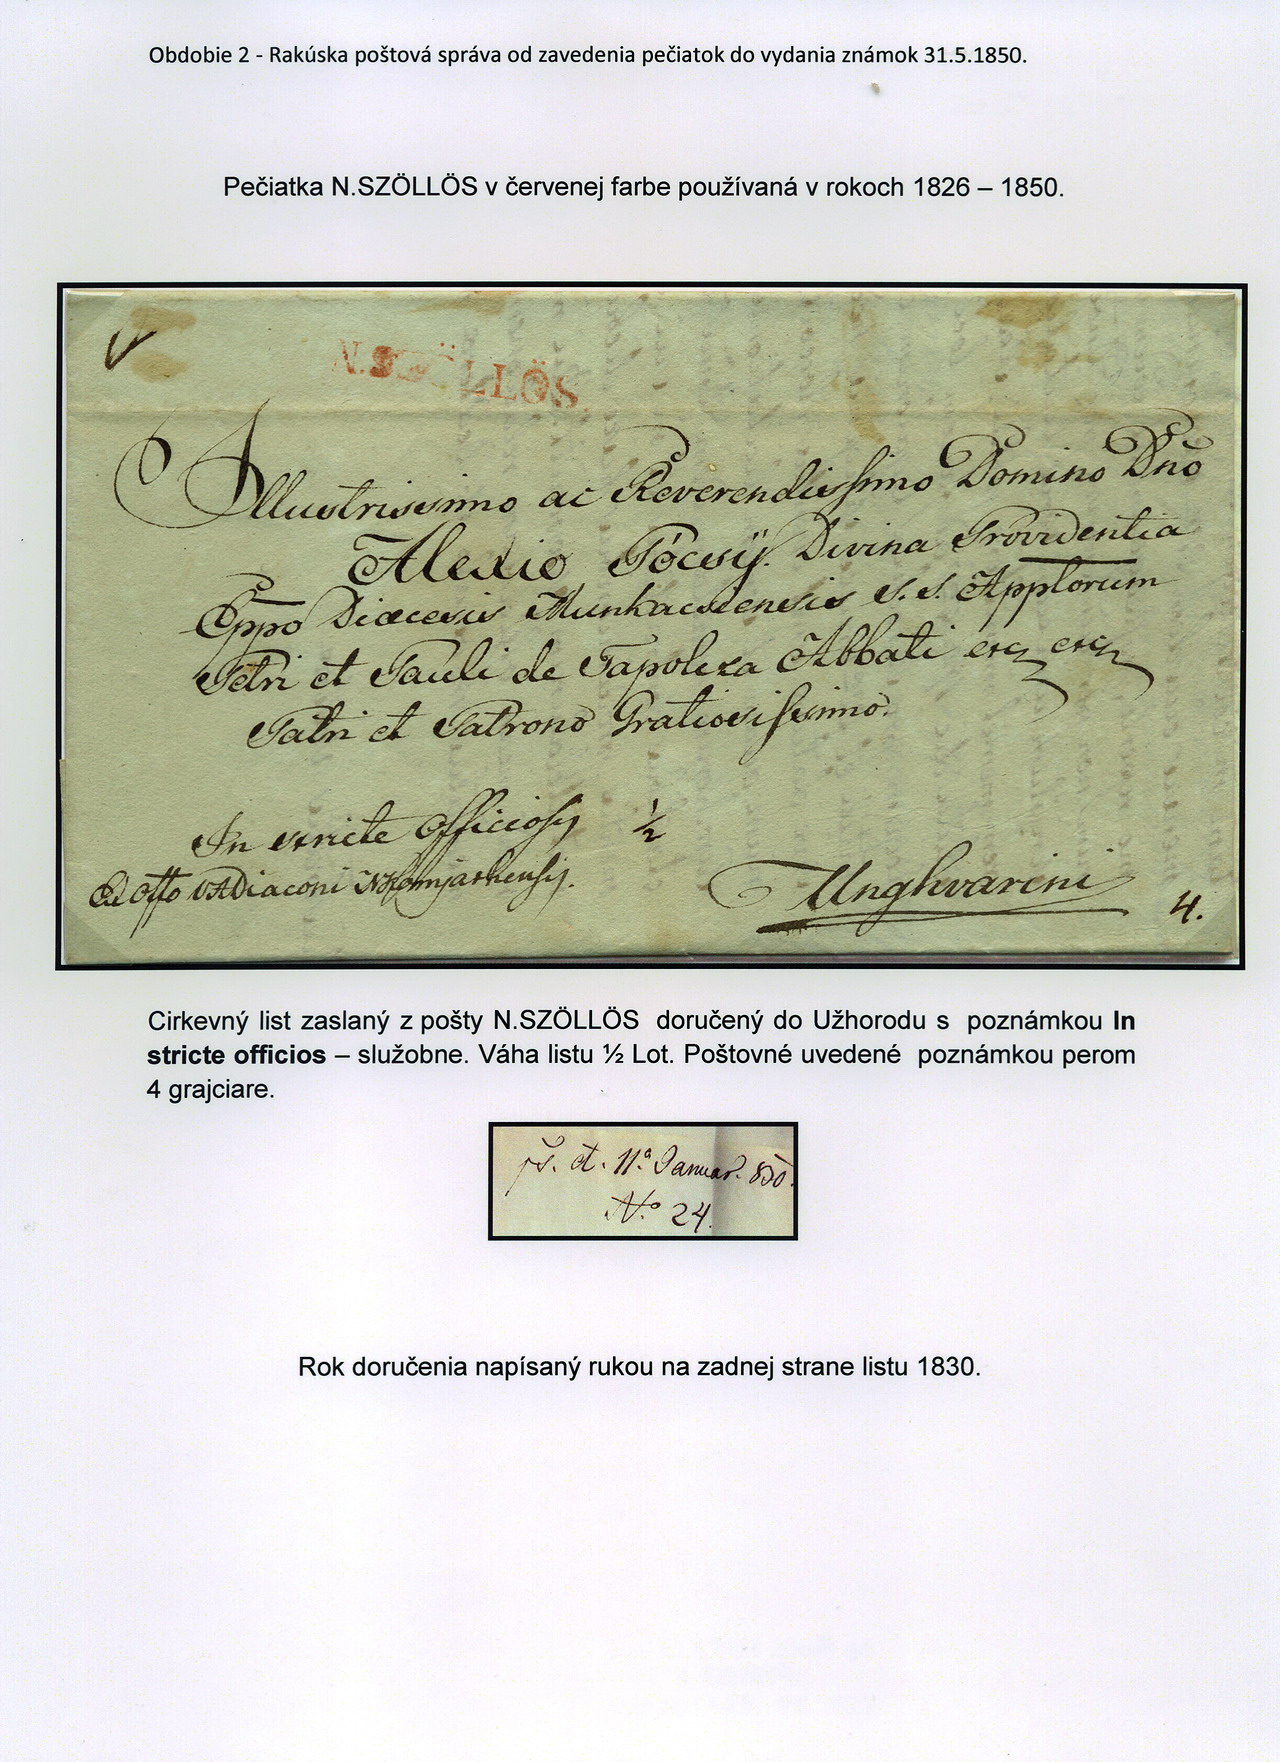 Obdobie 2 - Rakúska poštová správa od zavedenia pečiatok do vydania známok 31.5.1850.
Pečiatka N.SZÖLLÖS v červenej farbe používaná v rokoch 1826 – 1850.
N.SZÖLLÖS.
Illustrissimo ac Reverendissimo Domino Dño
Alexio Pócsÿ. Divina Providentia
Eppo Diœcesis Munkacsiensis S. S. Applorum
Petri et Pauli de Tapolcza Abbati etc etc
Patri et Patrono Gratiosissimo.
In stricte Officiosis ½
Ex offo VADiaconi
Unghvarini 4.
Cirkevný list zaslaný z pošty N.SZÖLLÖS doručený do Užhorodu s poznámkou In
stricte officios – služobne. Váha listu ½ Lot. Poštovné uvedené poznámkou perom
4 grajciare.
ps. d. 11ª Januar. 830.
Nº 24.
Rok doručenia napísaný rukou na zadnej strane listu 1830.